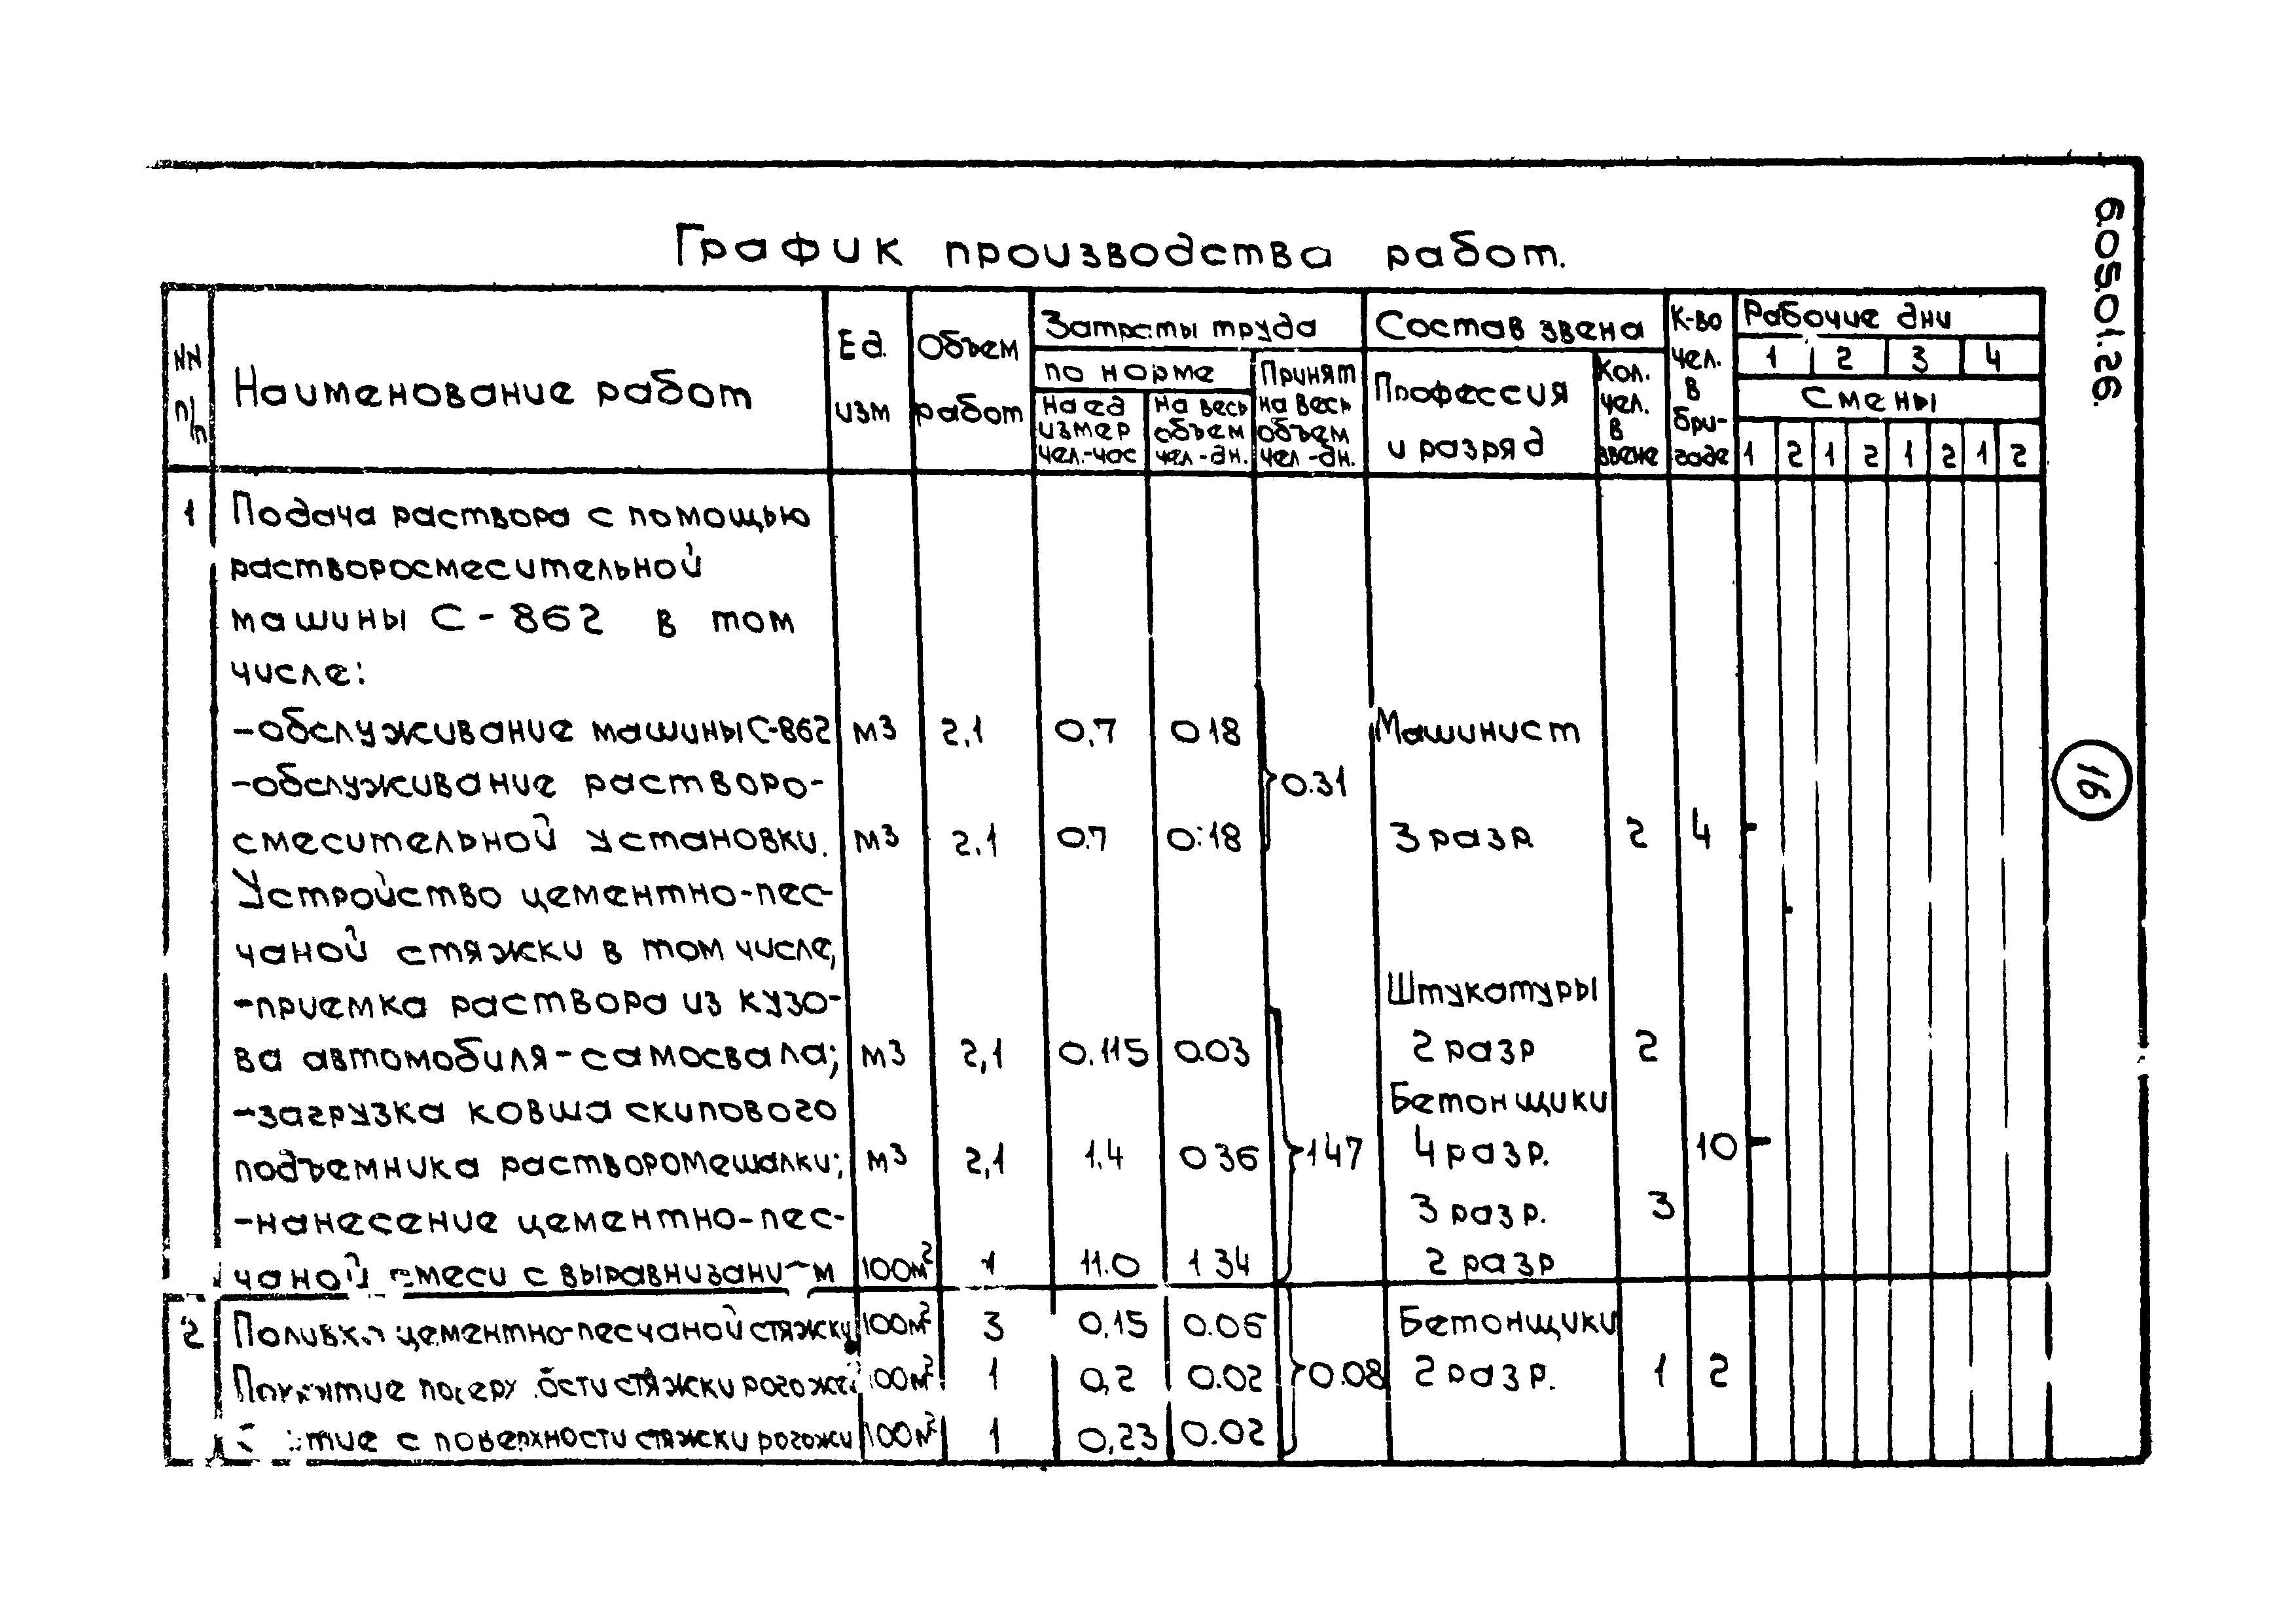 6.05.01.26.
График производства работ.
NN п/п
Наименование работ
Ед. изм
Объем работ
Затраты труда
по норме
на ед измер чел.-час
на весь объем чел-дн.
Принят на весь объем чел-дн.
Состав звена
Профессия и разряд
Кол. чел. в звене
К-во чел. в бригаде
Рабочие дни
1 2 3 4
Смены
1 2 1 2 1 2 1 2
1 Подача раствора с помощью
растворосмесительной
машины С-862 в том
числе:
-обслуживание машины С-862 м3 2,1 0,7 0 18 Машинист
-обслуживание растворо- 0.31
смесительной установки. м3 2.1 0.7 0.18 3 разр. 2 4
Устройство цементно-пес-
чаной стяжки в том числе,
-приемка раствора из кузо- Штукатуры
ва автомобиля-самосвала; м3 2,1 0.115 0.03 2 разр 2
-загрузка ковша скипового Бетонщики
подъемника растворомешалки; м3 2,1 1.4 0 36 147 4 разр. 10
-нанесение цементно-пес- 3 разр. 3
чаной смеси с 100м2 1 11.0 1 34 2 разр
2 цементно-песчаной стяжки 100м2 3 0,15 0.06 Бетонщики
стяжки 100м2 1 0,2 0.02 0.08 2 разр. 1 2
с поверхности стяжки рогожи 100м2 1 0,23 0.02
16